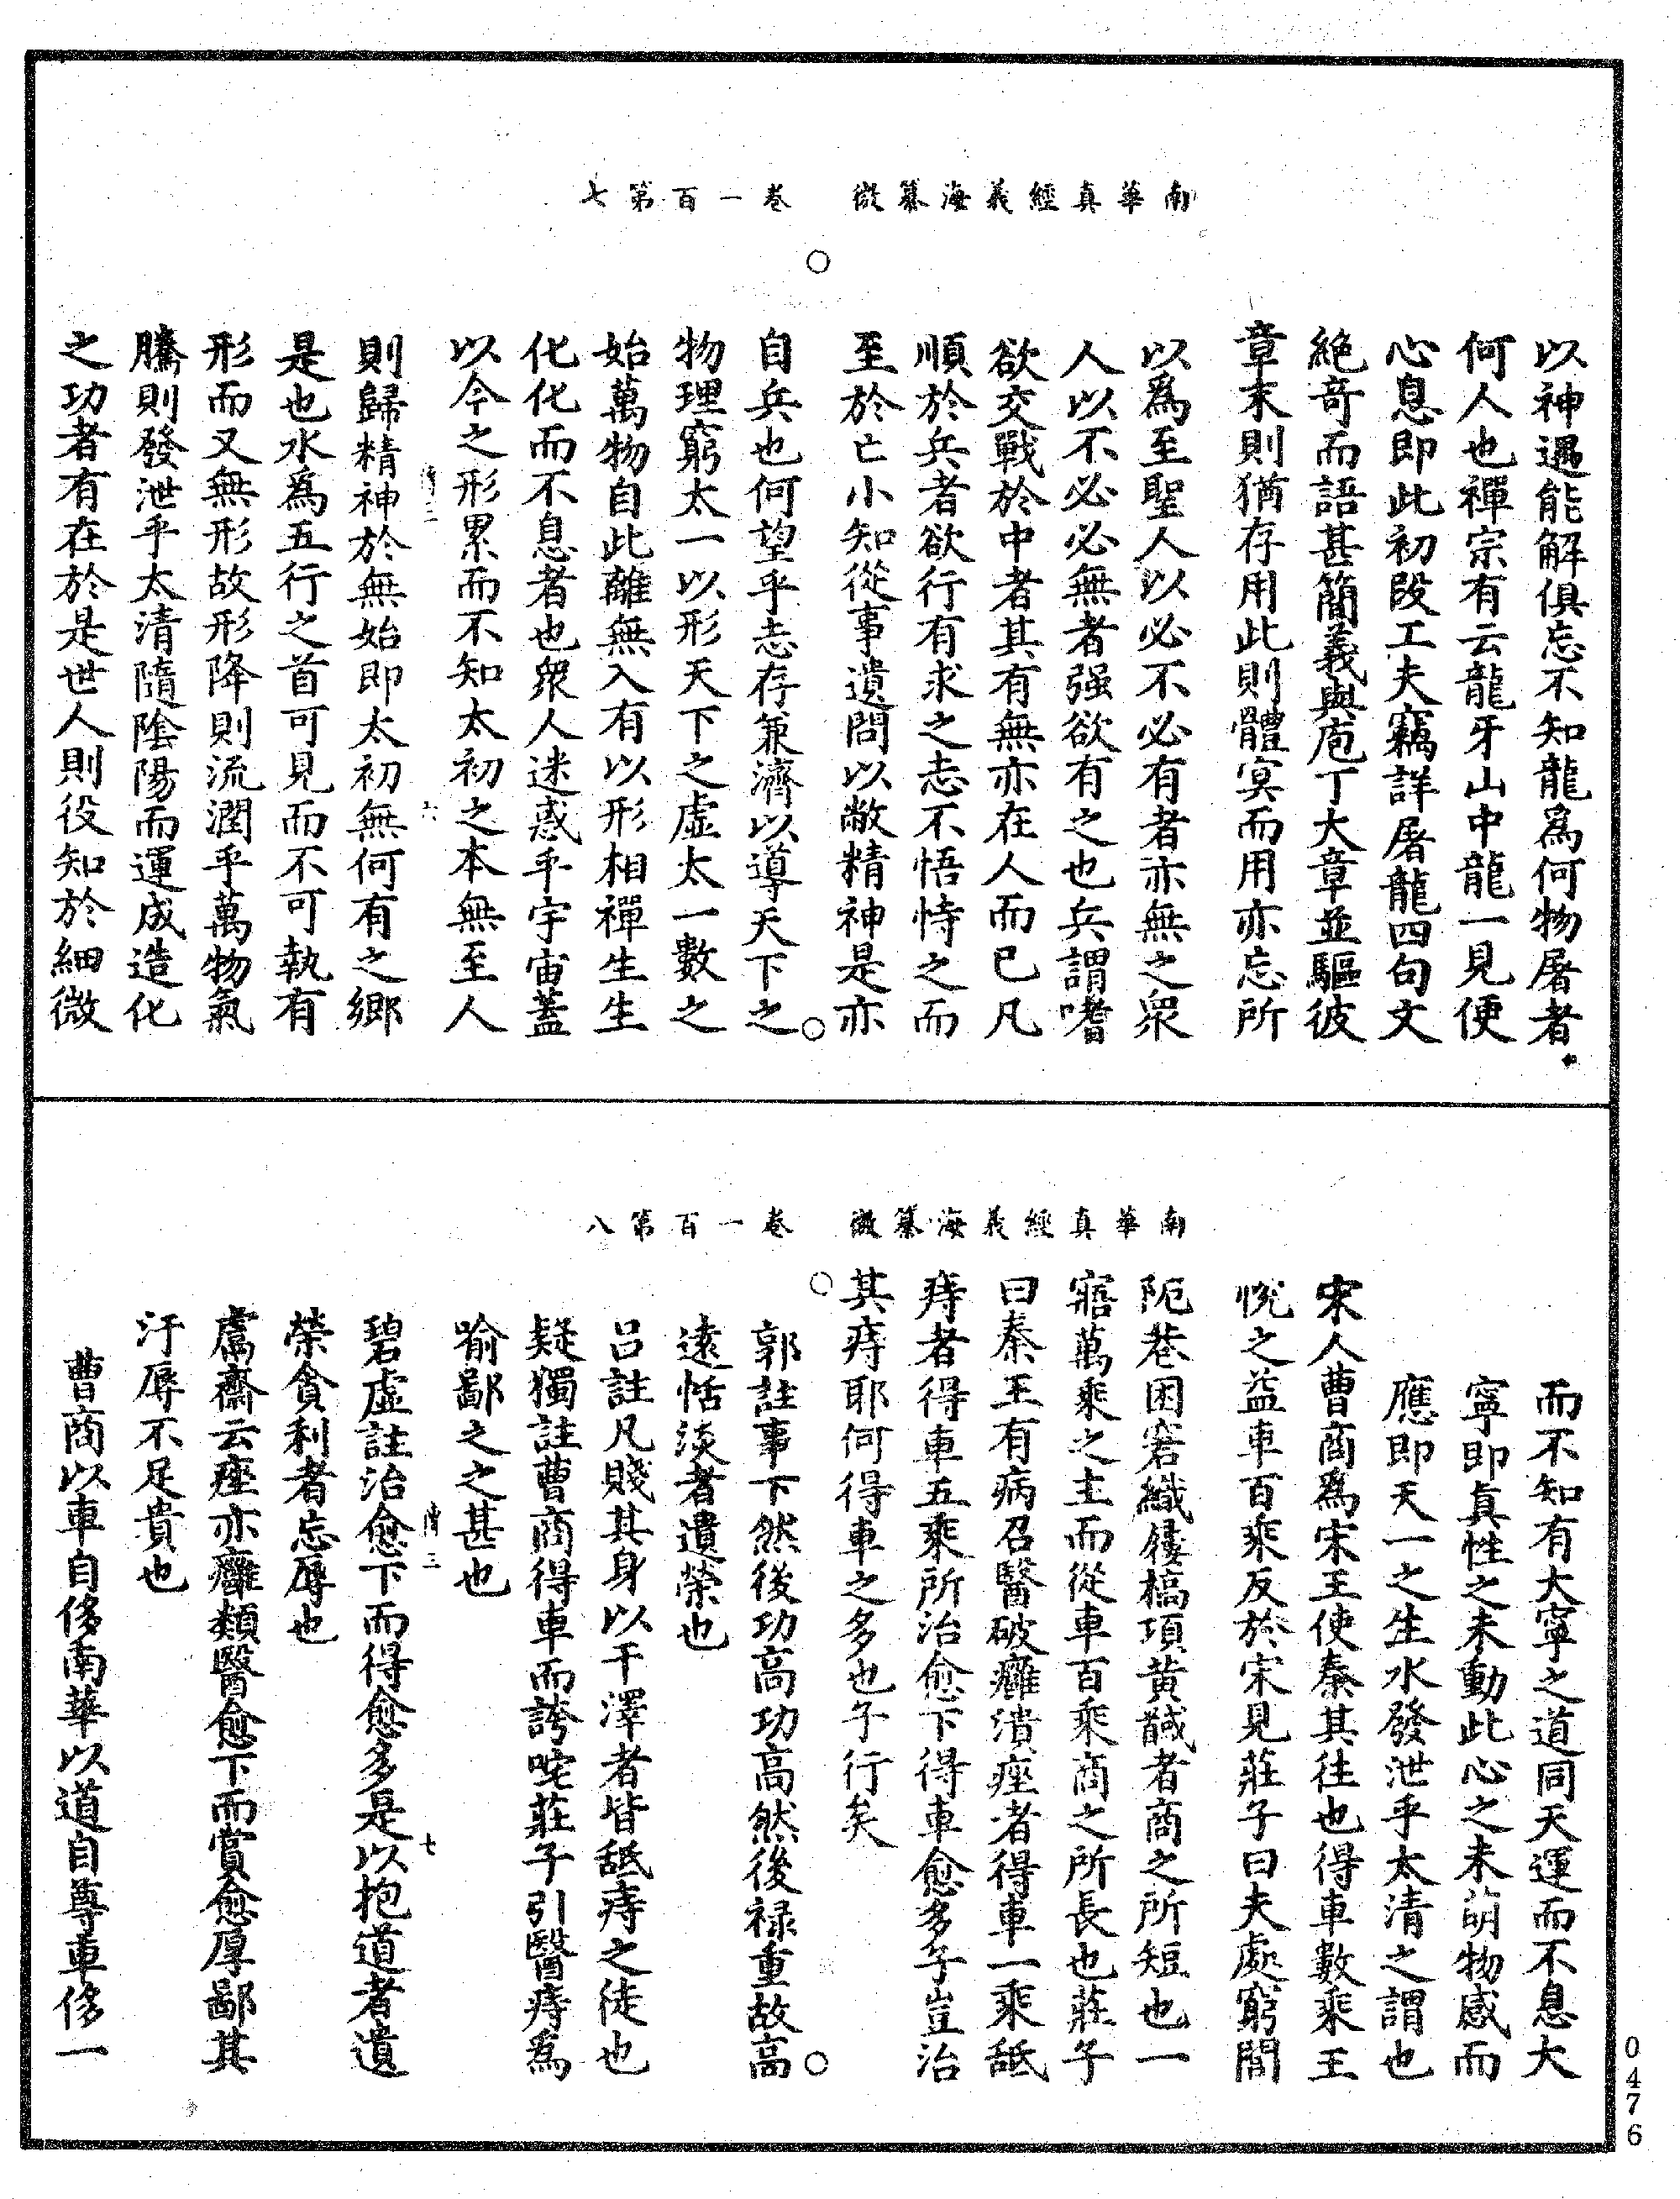 南華真經義海纂微　卷一百第七
以神遇能解俱忘不知龍爲何物屠者
何人也禪宗有云龍牙山中龍一見便
心息即此初段工夫竊詳屠龍四句文
絕奇而語甚簡義與庖丁大章並驅彼
章末則猶存用此則體冥而用亦忘所
以爲至聖人以必不必有者亦無之眾
人以不必必無者强欲有之也兵謂嗜
欲交戰於中者其有無亦在人而已凡
順於兵者欲行有求之志不悟恃之而
至於亡小知從事遺問以敝精神是亦
自兵也何望乎志存兼濟以導天下之
物理窮太一以形天下之虛太一數之
始萬物自此離無入有以形相禪生生
化化而不息者也眾人迷惑乎宇宙蓋
以今之形累而不知太初之本無至人
則歸精神於無始即太初無何有之鄉
是也水爲五行之首可見而不可執有
形而又無形故形降則流潤乎萬物氣
騰則發泄乎太清隨陰陽而運成造化
之功者有在於是世人則役知於細微
六
南華真經義海纂微　卷一百第八
而不知有大寧之道同天運而不息大
寧即真性之未動此心之未萌物感而
應即天一之生水發泄乎太清之謂也
宋人曹商爲宋王使秦其往也得車數乘王
悅之益車百乘反於宋見莊子曰夫處窮閭
阨巷困窘織屨槁項黃馘者商之所短也一
寤萬乘之主而從車百乘商之所長也莊子
曰秦王有病召醫破癰潰痤者得車一乘舐
痔者得車五乘所治愈下得車愈多子豈治
其痔耶何得車之多也子行矣
郭註事下然後功高功高然後祿重故高
遠恬淡者遺榮也
呂註凡賤其身以干澤者皆舐痔之徒也
疑獨註曹商得車而誇咤莊子引醫痔爲
喻鄙之之甚也
碧虛註治愈下而得愈多是以抱道者遺
榮貪利者忘辱也
鬳齋云痤亦癰類醫愈下而賞愈厚鄙其
汙辱不足貴也
曹商以車自侈南華以道自尊車侈一
七
0476